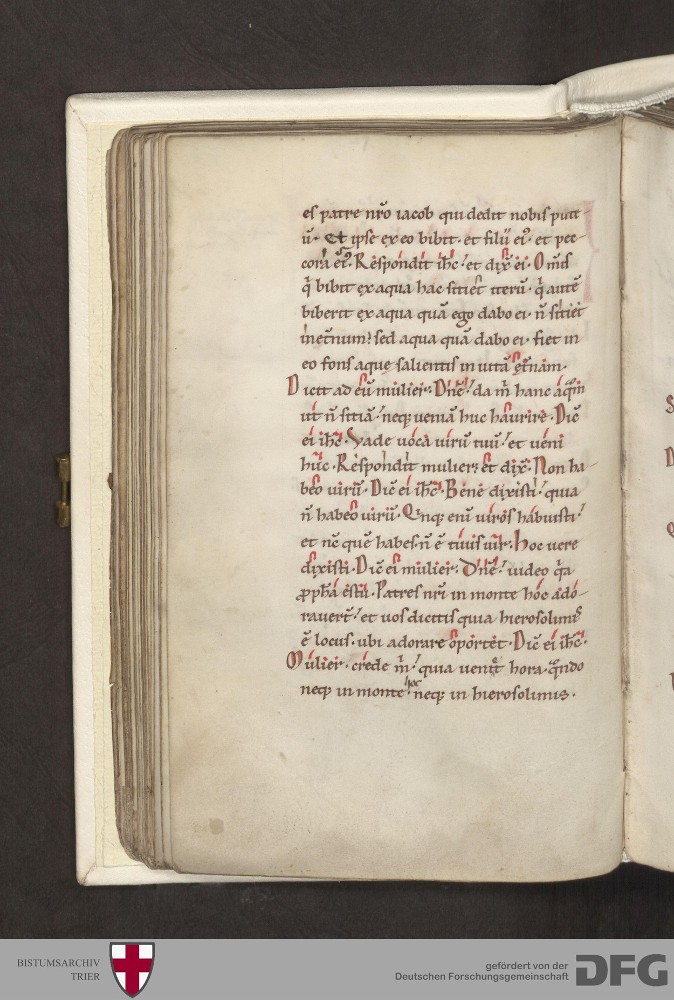 es patre nr̄o iacob qui dedit nobis pute
ū· Et ipse ex eo bibit· et filii ei᾽· et pec
cora ei᾽· Respondit ihc̄· et dix̄ ei· Om̄s
q̄ bibit ex aqua hac sitiet iterū· q̄ autē
biberit ex aqua quā ego dabo ei· n̄ sitiet
in et̄num· sed aqua quā dabo ei· fiet in
eo fons aque salientis in uitā et̄nam·
Dicit ad eū mulier· Dn̄e· da m̄ hanc aquam
ut n̄ sitiā· neq; ueniā huc haurire· Dic̄
ei ihc̄· Vade uoca uirū tuū· et ueni
huc· Respondit mulier· et dix̄· Non ha
beo uirū· Dic̄ ei ihc̄· Bene dixisti· quia
n̄ habeo uirū· Qnq; enī uiros habuisti·
et nc̄ quē habes· n̄ ē tuus uir· Hoc uere
dixisti· Dic̄ ei mulier· Dn̄e· uideo q̄a
ꝓpha es tu· Patres nr̄i in monte hoc ado
rauer̄t· et uos dicitis quia hierosolimis
ē locus· ubi adorare oportet· Dic̄ ei ihc̄·
Mulier· crede m̄· quia ueniet hora· quando
neq; in monte hoc neq; in hierosolimis·
BISTUMSARCHIV
TRIER
gefördert von der
Deutschen Forschungsgemeinschaft
DFG